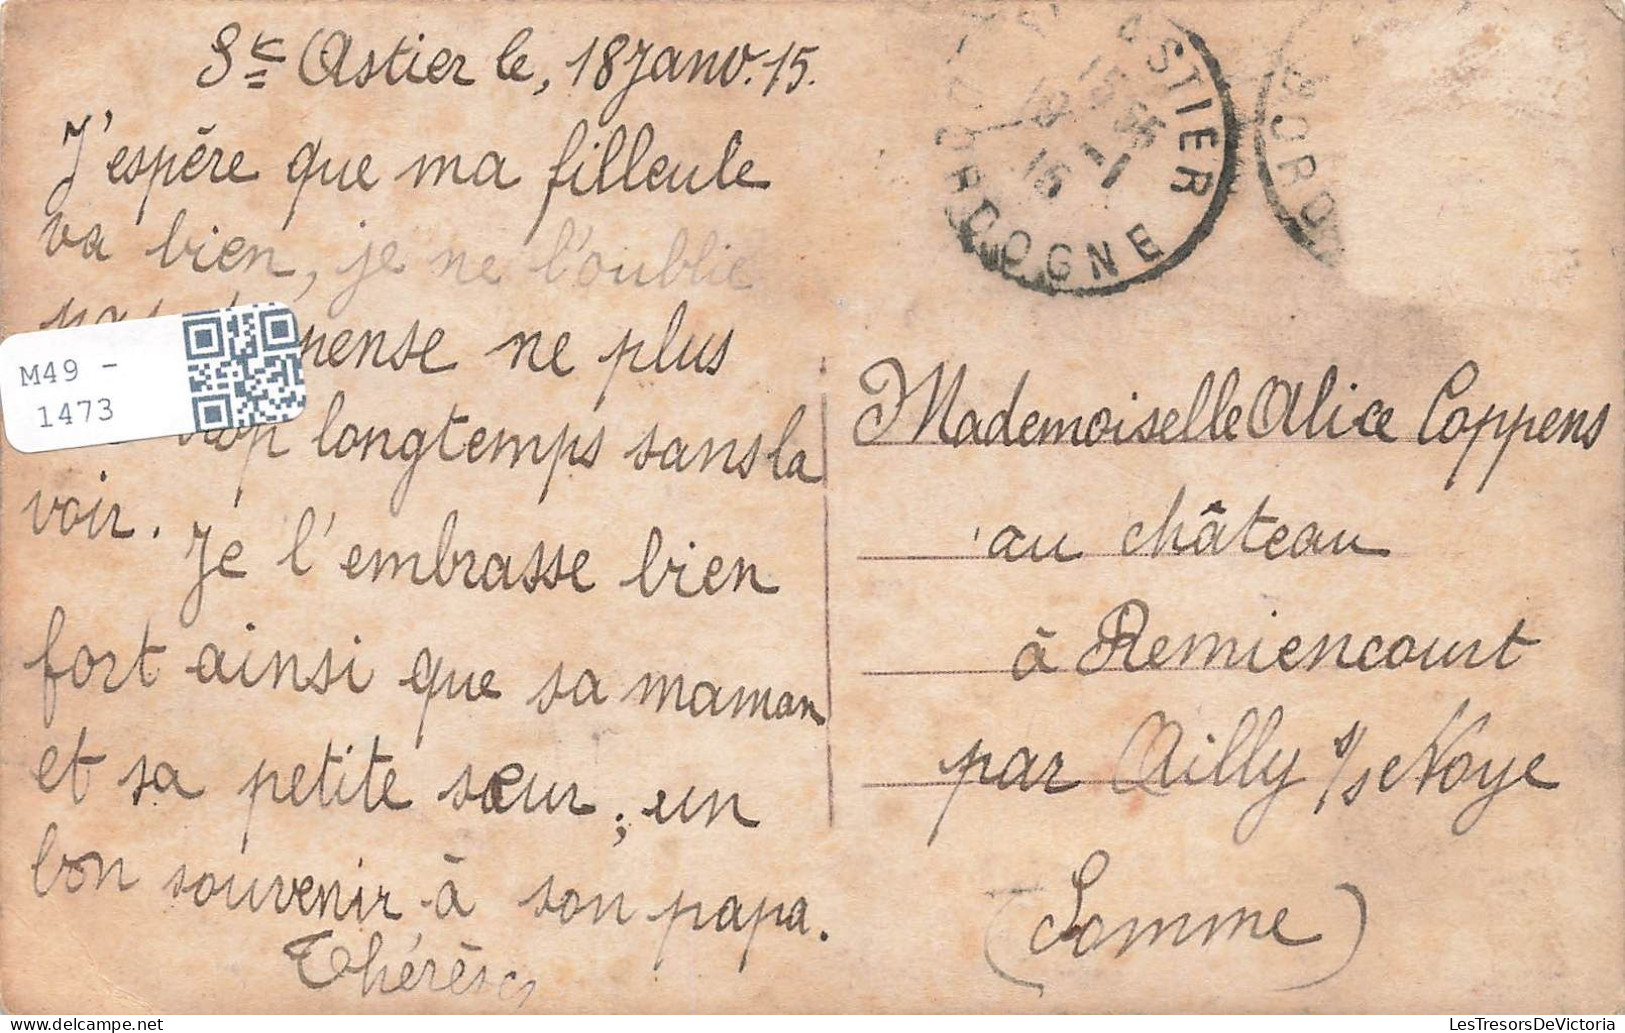 St Astier le, 18 Janv. 15.
J'espère que ma filleule
va bien, je ne l'oublie
pas pense ne plus
trop longtemps sans la
voir. Je l'embrasse bien
fort ainsi que sa maman
et sa petite sœur; un
bon souvenir à son papa.
Thérèse
M49 -
1473
ASTIER
DORDOGNE
DORDO
Mademoiselle Alice Coppens
au château
à Remiencourt
par Ailly s/s Noye
(Somme)
LesTresorsDeVictoria